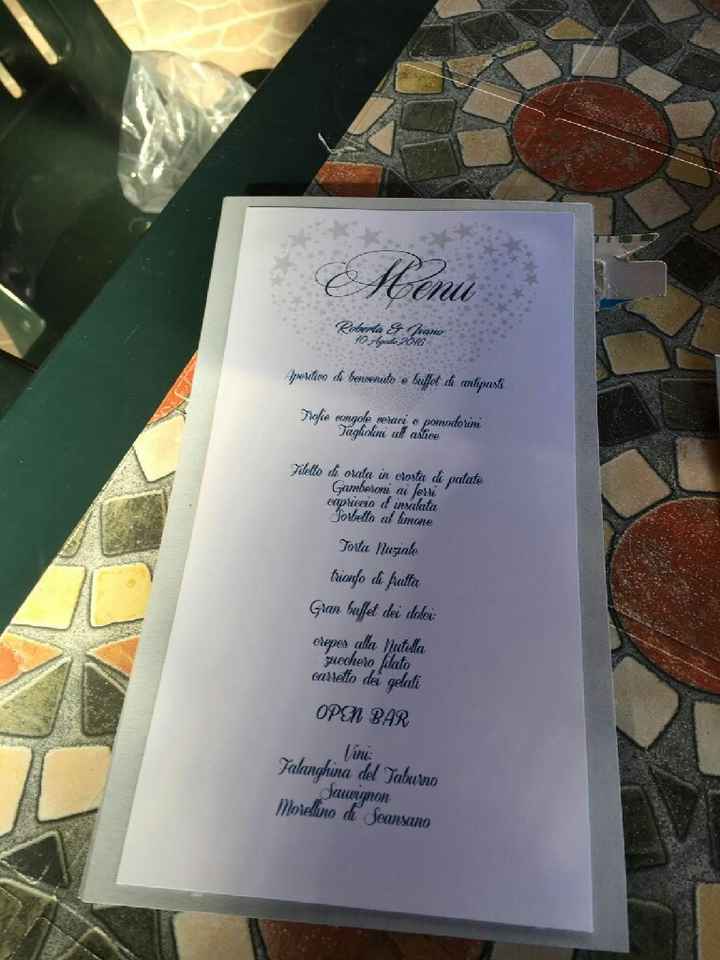 Menu
Roberta & Ivano
10 Agosto 2016
Aperitivo di benvenuto e buffet di antipasti
Trofie vongole veraci e pomodorini
Tagliolini all'astice
Filetto di orata in crosta di patate
Gamberoni ai ferri
capriccio d'insalata
Sorbetto al limone
Torta Nuziale
trionfo di frutta
Gran buffet dei dolci:
crepes alla Nutella
zucchero filato
carretto dei gelati
OPEN BAR
Vini:
Falanghina del Taburno
Sauvignon
Morellino di Scansano